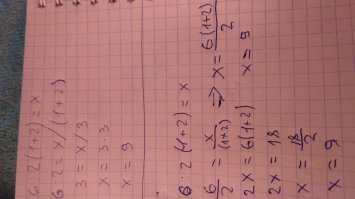 6:2(1+2)=x
6:2=x/(1+2)
3=x/3
x=3·3
x=9
6:2(1+2)=x
6/2=x/(1+2) ⇒ x=6(1+2)/2
2x=6(1+2) x=9
2x=18
x=18/2
x=9